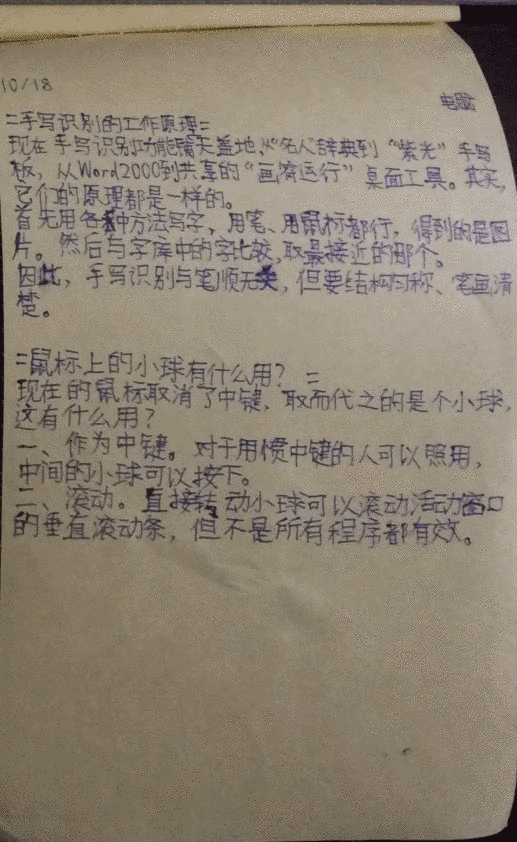 10/18
电脑
=手写识别的工作原理=
现在手写识别功能铺天盖地,从“名人”辞典到“紫光”手写
板，从Word2000到共享的“画方运行”桌面工具。其实,
它们的原理都是一样的。
首先用各种方法写字，用笔、用鼠标都行，得到的是图
片。然后与字库中的字比较,取最接近的那个。
因此，手写识别与笔顺无关，但要结构匀称、笔画清
楚。
=鼠标上的小球有什么用？=
现在的鼠标取消了中键，取而代之的是个小球,
这有什么用？
一、作为中键。对于用惯中键的人可以照用，
中间的小球可以按下。
二、滚动。直接转动小球可以滚动活动窗口
的垂直滚动条，但不是所有程序都有效。